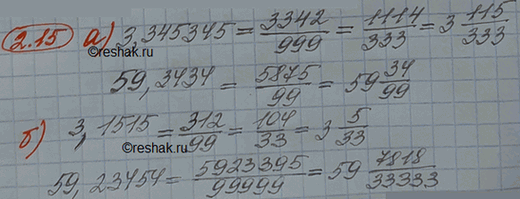 2.15 а) 3,345345 = 3342/999 = 1114/333 = 3 115/333
59,3434 = 5875/99 = 59 34/99
б) 3,1515 = 312/99 = 104/33 = 3 5/33
59,23454 = 5923395/99999 = 59 7818/33333
©reshak.ru
©reshak.ru